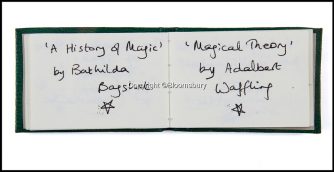 'A History of Magic'
by Bathilda
Bagshot
'Magical Theory'
by Adalbert
Waffling
Copyright ©Bloomsbury